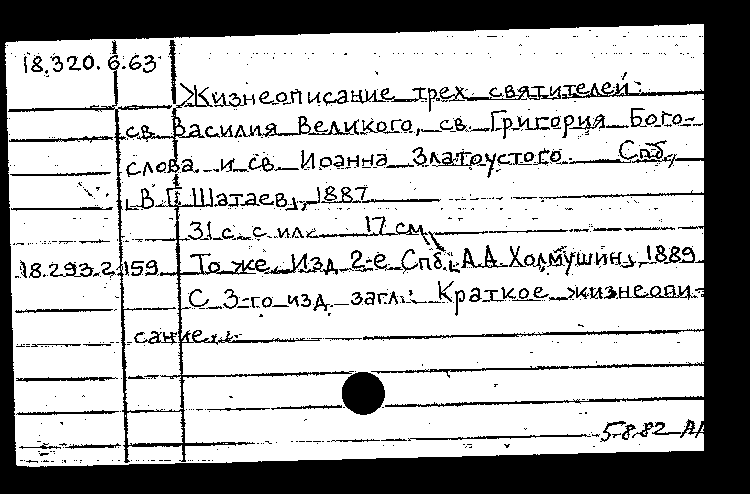 18.320.6.63
Жизнеописание трех святителей:
св. Василия Великого, св. Григория Бого-
слова и св. Иоанна Златоустого. Спб.,
[В. Г. Шатаев], 1887.
31 с. с ил. 17 см.
18.293.2.159 То же. Изд. 2-е. Спб., [А. А. Холмушин], 1889
С 3-го изд. загл.: Краткое жизнеопи-
сание...
5.8.82